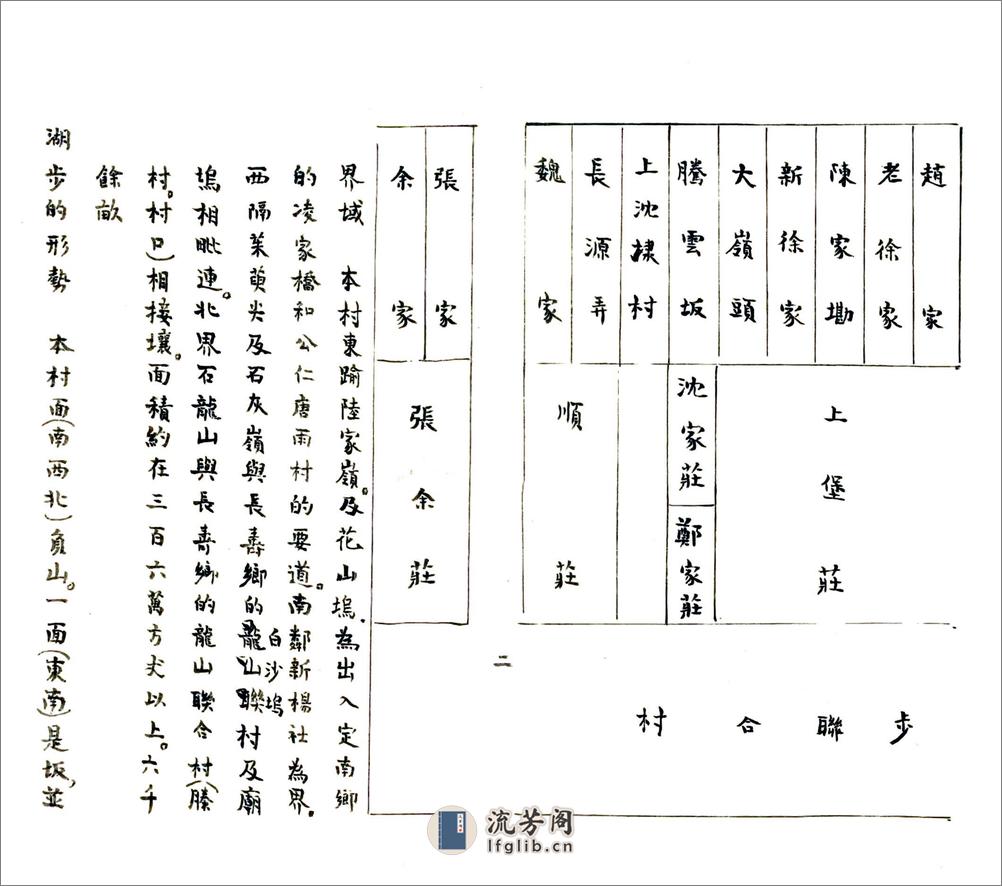 趙家
老徐家
陳家墈
新徐家
大嶺頭
騰雲坂
上沈棣村
長源弄
魏家
上堡莊
沈家莊
鄭家莊
順莊
步聯合村
二
張家
余家
張余莊
界域　本村東踰陸家嶺。及花山塢.為出入定南鄉
的凌家橋和公仁唐雨村的要道。南鄰新楊社為界.
西隔茱萸尖及石灰嶺與長壽鄉的龍山聯村及廟
白沙塢
塢相毗連。北界石龍山與長壽鄉的龍山聯合村(滕
村。村口)相接壤。面積約在三百六萬方丈以上。六千
餘畝
湖步的形勢　本村面(南西北)負山。一面(東南)是坂,並
流芳阁
lfglib.cn